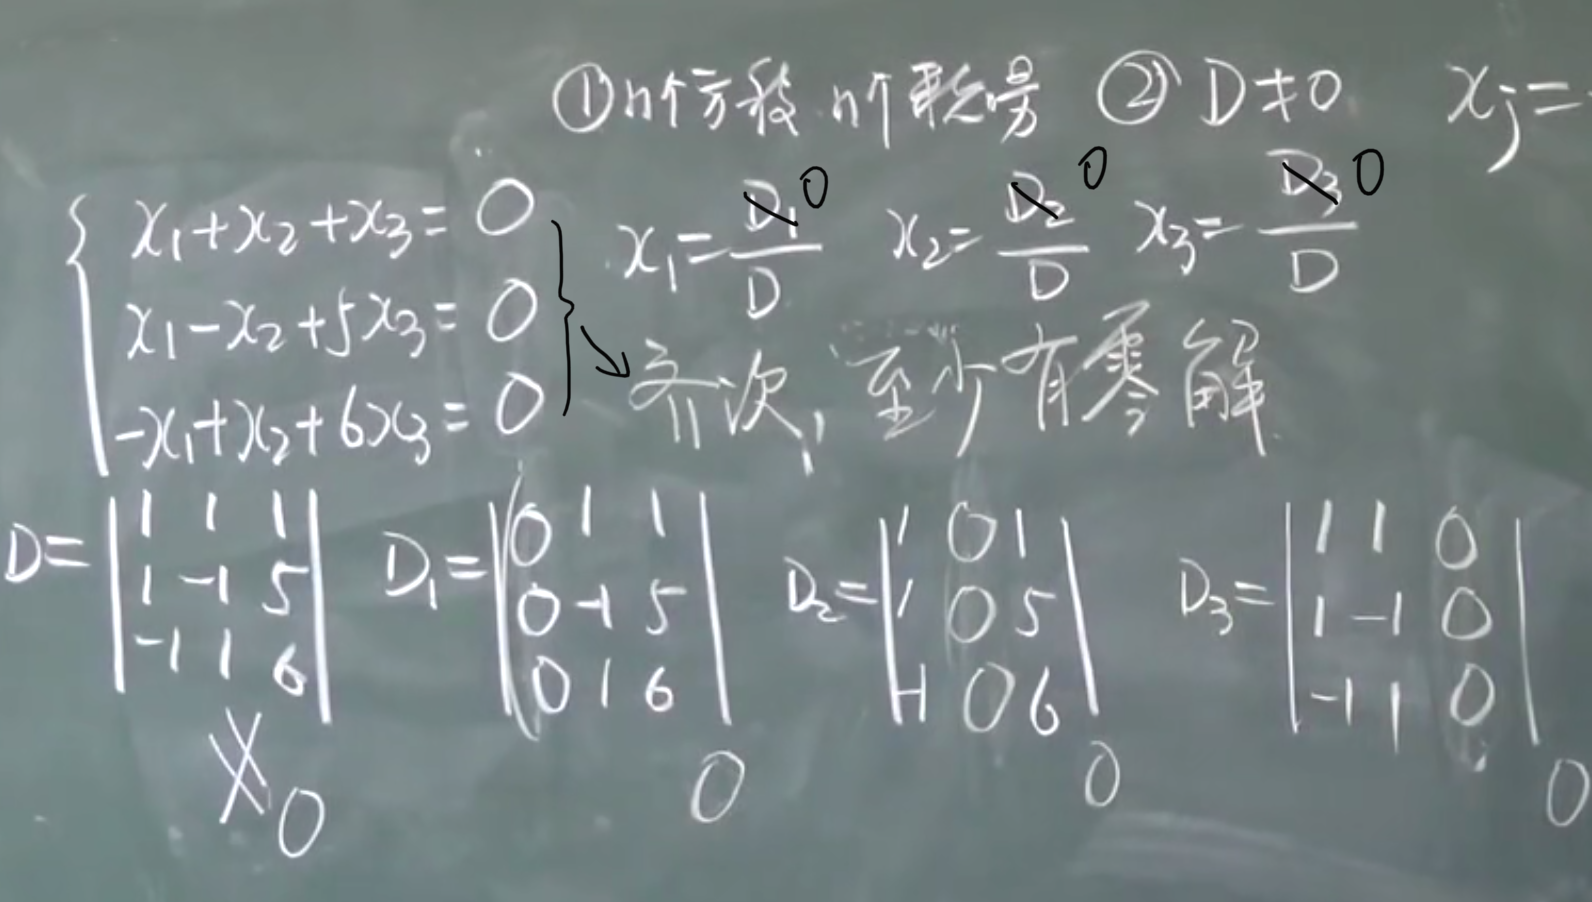 ①n个方程 n个未知量 ② D≠0 xj=
x1+x2+x3=0
x1-x2+5x3=0
-x1+x2+6x3=0
x1=D1/D 0 x2=D2/D 0 x3=D3/D 0
齐次,至少有零解
D=|1 1 1
1 -1 5
-1 1 6|
D1=|0 1 1
0 -1 5
0 1 6|
D2=|1 0 1
1 0 5
-1 0 6|
D3=|1 1 0
1 -1 0
-1 1 0|
≠0 0 0 0